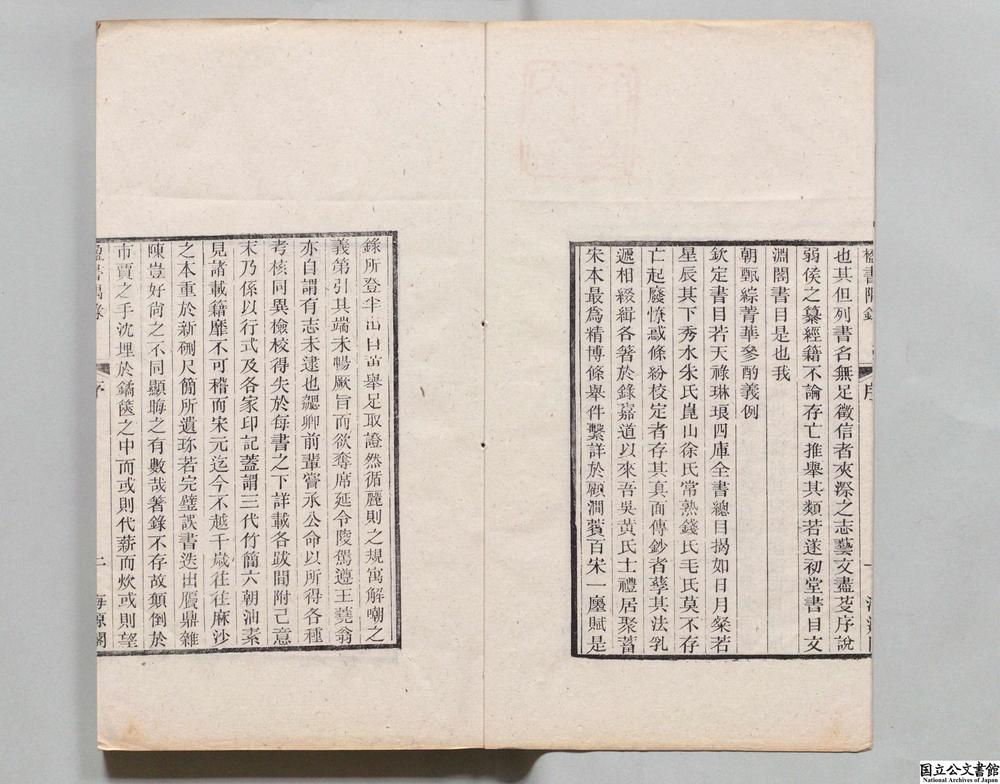 楹書隅錄
也其但列書名無足徵信者夾漈之志藝文盡芟序說
弱侯之纂經籍不論存亡推舉其類若遂初堂書目文
淵閣書目是也我
朝甄綜菁華參酌義例
欽定書目若天祿琳琅四庫全書總目揭如日月粲若
星辰其下秀水朱氏崑山徐氏常熟錢氏毛氏莫不存
亡起廢憭惑條紛校定者存其真面傳鈔者孳其法乳
遞相綴緝各箸於錄嘉道以來吾吳黃氏士禮居聚蓄
宋本最爲精博條舉件繫詳於顧澗薲百宋一廛賦是
錄所登半出自留舉足取證然循麗則之規寓解嘲之
義第引其端未暢厥旨而欲奪席延令陵駕遵王蕘翁
亦自謂有志未逮也勰卿前輩嘗承公命以所得各種
考核同異檢校得失於每書之下詳載各跋間附己意
末乃係以行式及各家印記蓋謂三代竹簡六朝油素
見諸載籍靡不可稽而宋元迄今不越千歲往往麻沙
之本重於新硎尺簡所遺珎若完璧誤書迭出贗鼎雜
陳豈好尚之不同顯晦之有數哉著錄不存故顛倒於
市賈之手沈埋於鐍篋之中而或則代薪而炊或則望
楹書隅錄 序 二 海源閣
国立公文書館
National Archives of Japan